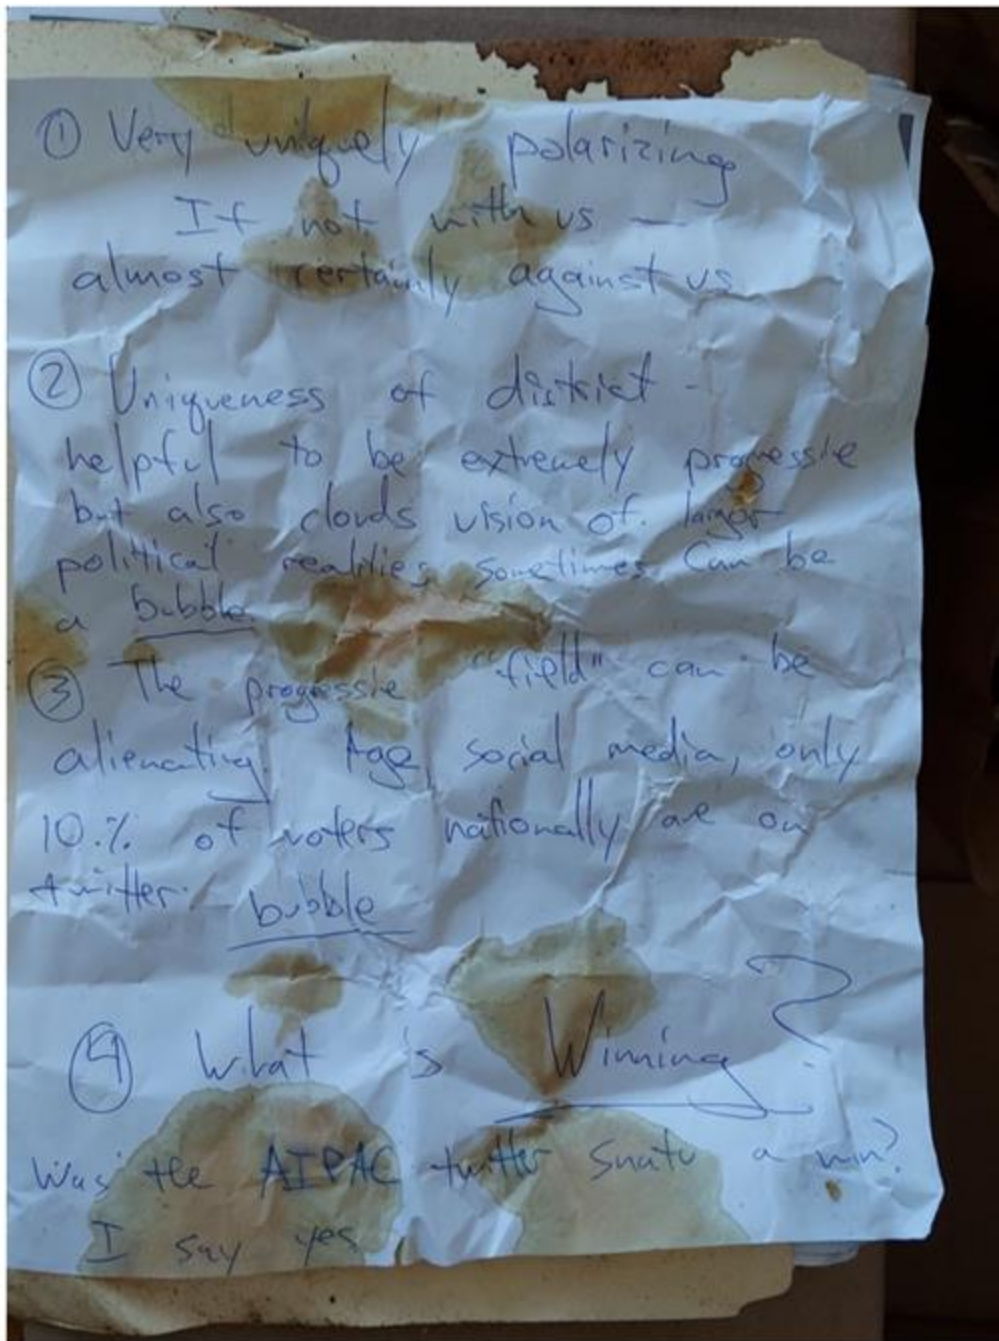 ① Very "uniquely" polarizing
If not with us —
almost certainly against us
② Uniqueness of district -
helpful to be extremely progressive
but also clouds vision of larger
political realities sometimes. Can be
a bubble
③ The progressive "field" can be
alienating. Age, social media, only
10.% of voters nationally are on
twitter. bubble
④ What is Winning?
Was the AIPAC twitter a win?
I say yes